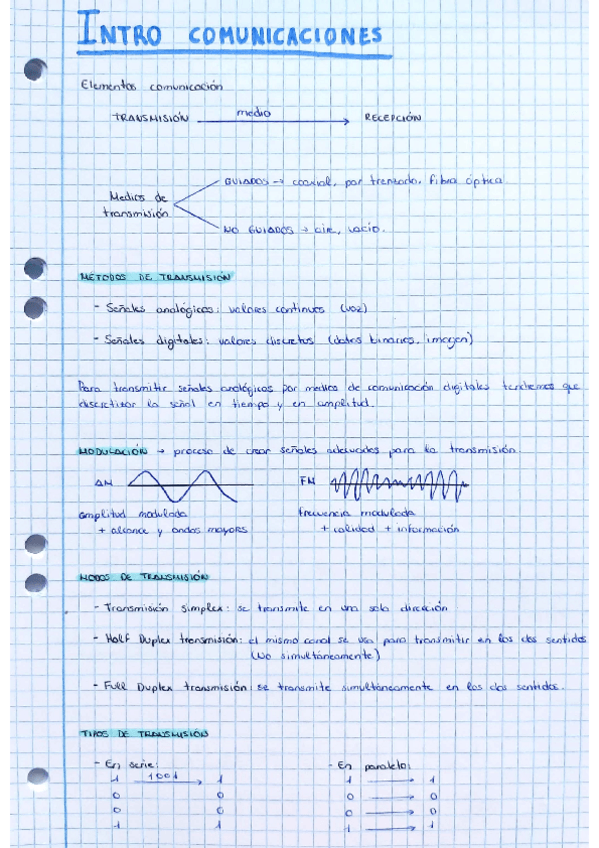 INTRO COMUNICACIONES
Elementos comunicación
TRANSMISIÓN medio RECEPCIÓN
GUIADOS → coaxial, par trenzado, fibra óptica
Medios de
transmisión
NO GUIADOS → aire, vacio.
MÉTODOS DE TRANSMISIÓN
- Señales analógicas: valores continuos (voz)
- Señales digitales: valores discretos (datos binarios, imagen)
Para transmitir señales analógicas por medios de comunicación digitales tendremos que
discretizar la señal en tiempo y en amplitud.
MODULACIÓN → proceso de crear señales adecuadas para la transmisión.
AM FM
amplitud modulada frecuencia modulada
+ alcance y ondas mayores + calidad + información
MODOS DE TRANSMISIÓN
- Transmisión simplex: se transmite en una sola dirección
- Half Duplex transmisión: el mismo canal se usa para transmitir en los dos sentidos
(No simultáneamente)
- Full Duplex transmisión: se transmite simultáneamente en los dos sentidos.
TIPOS DE TRANSMISIÓN
- En serie: - En paralelo:
1 1001 1 1 1
0 0 0 0
0 0 0 0
1 1 1 1